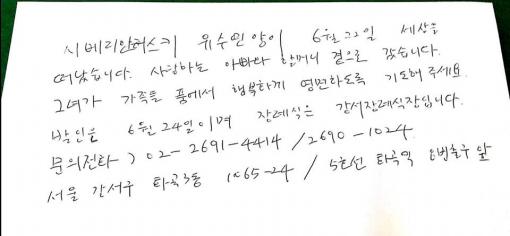 시베리안허스키 유수민양이 6월 22일 세상을
떠났습니다. 사랑하는 아빠와 할머니 곁으로 갔습니다.
그녀가 가족들 품에서 행복하게 영면하도록 기도해 주세요.
발인은 6월 24일이며 장례식은 강서장례식장입니다.
문의전화) 02-2691-4414 / 2690-1024
서울 강서구 화곡3동 1065-24 / 5호선 화곡역 번출구 앞